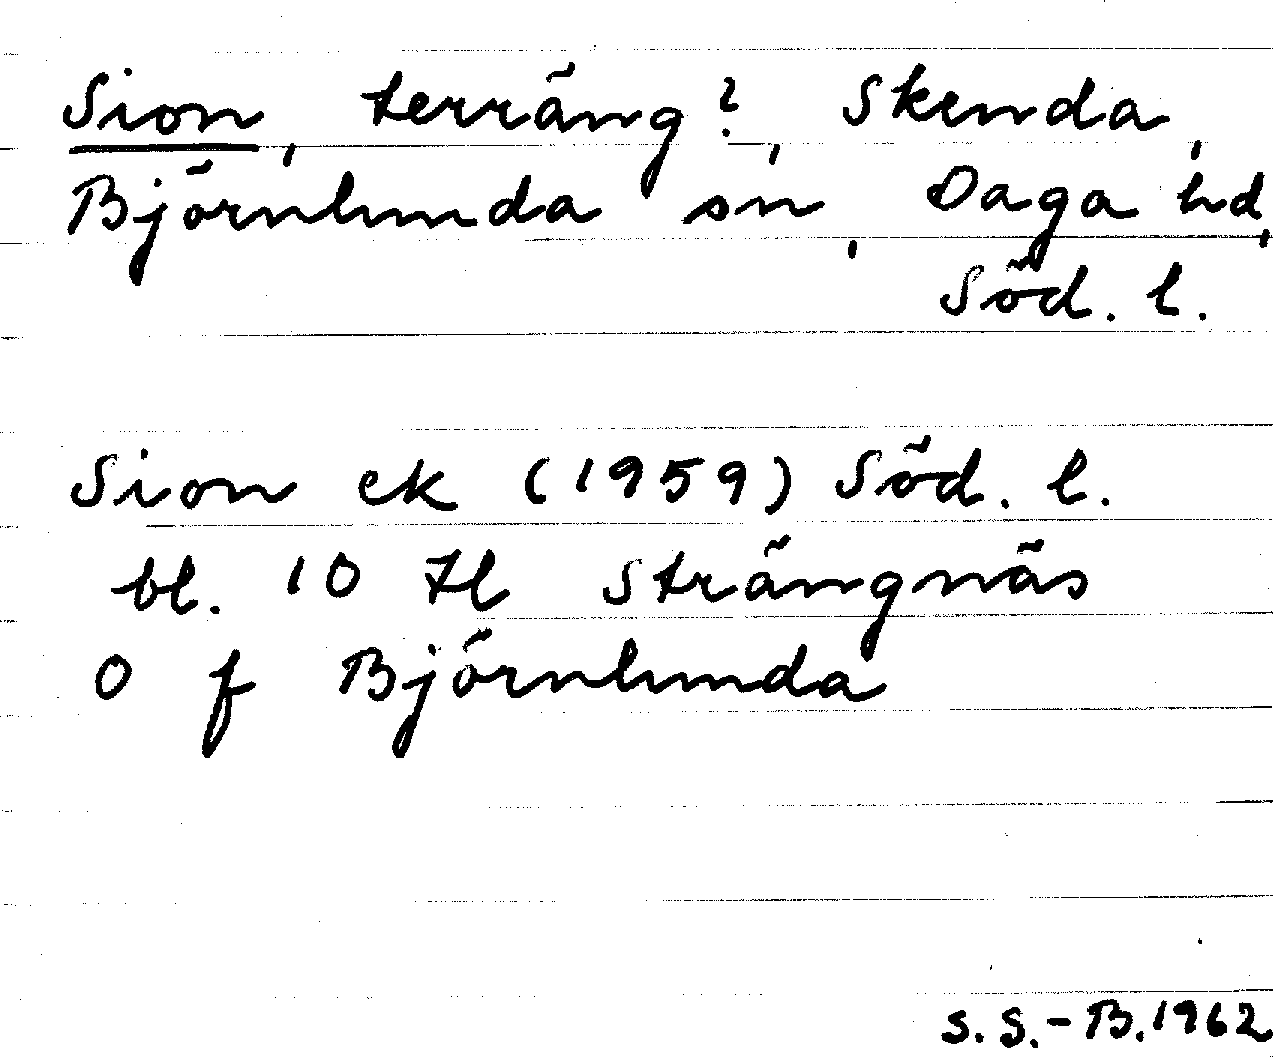 Sion, terräng?, Skenda,
Björnlunda sn, Daga hd,
Söd. l.
Sion ek (1959) Söd. l.
bl. 10 tl Strängnäs
O f Björnlunda
S. S.-B. 1962